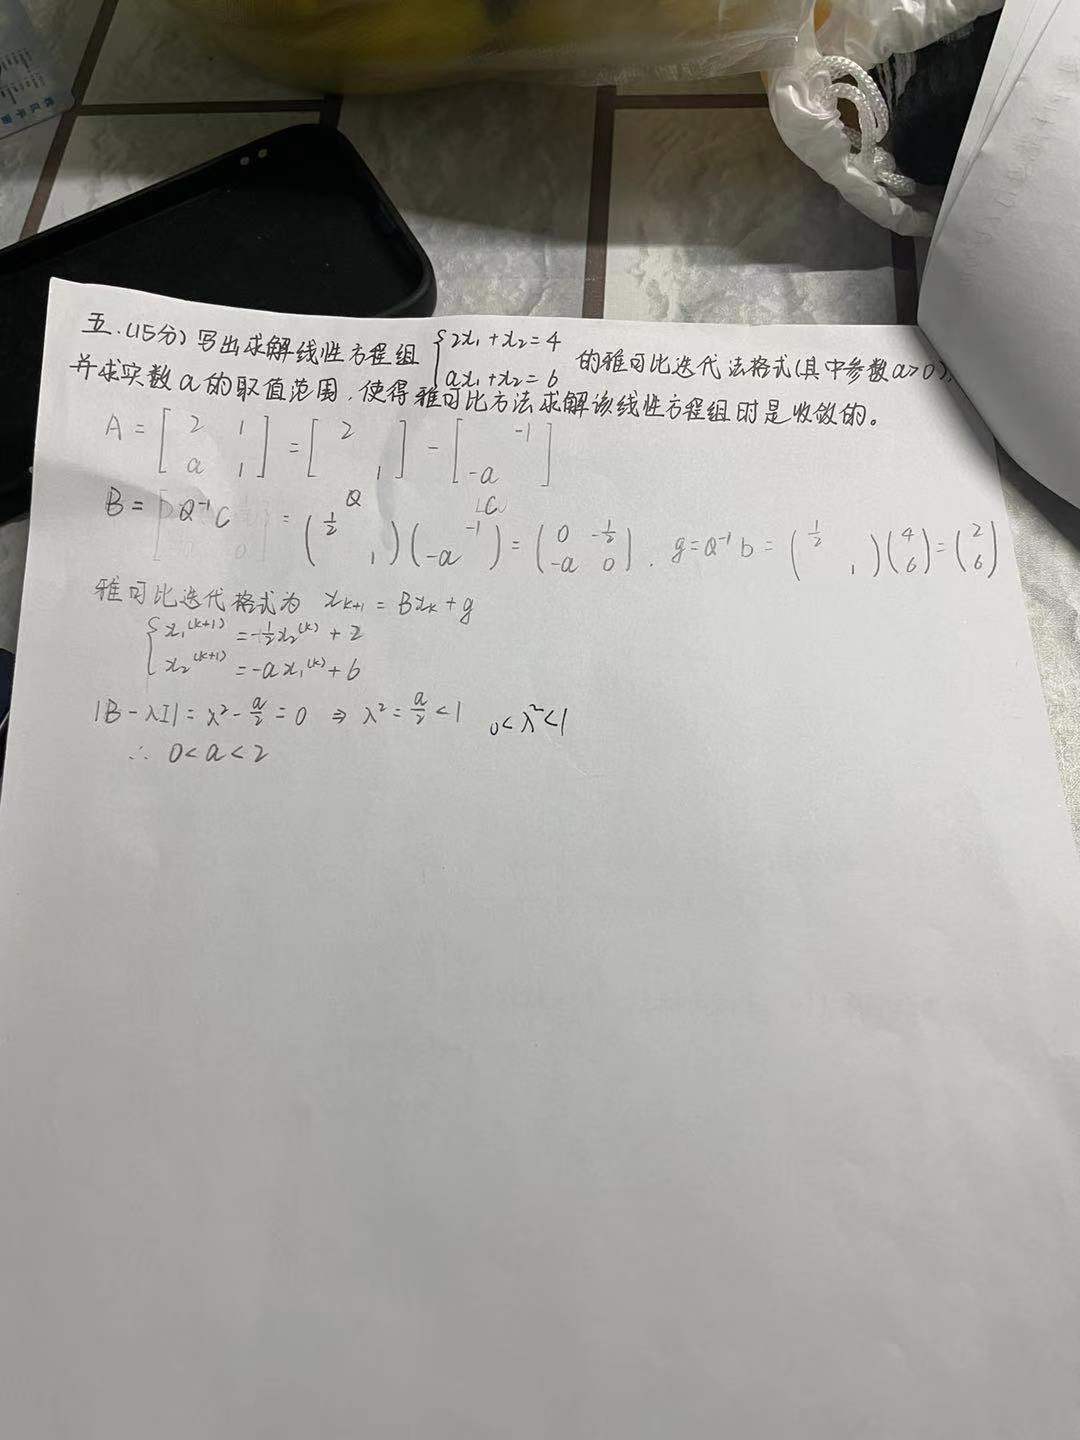 五.(15分)写出求解线性方程组 { 2x₁+x₂=4 的雅可比迭代法格式(其中参数a>0),
ax₁+x₂=6
并求实数a的取值范围,使得雅可比方法求解该线性方程组时是收敛的。
A = [ 2 1 ; a 1 ] = [ 2 ; 1 ] - [ -1 ; -a ]
Q C
B = Q⁻¹C = ( ½ ; 1 )( -1 ; -a ) = ( 0 -½ ; -a 0 ). g=Q⁻¹b = ( ½ ; 1 )( 4 ; 6 ) = ( 2 ; 6 )
雅可比迭代格式为 xₖ₊₁ = Bxₖ + g
{ x₁⁽ᵏ⁺¹⁾ = -½x₂⁽ᵏ⁾ + 2
x₂⁽ᵏ⁺¹⁾ = -ax₁⁽ᵏ⁾ + 6
|B-λI| = λ² - a/2 = 0 ⇒ λ² = a/2 < 1 0<λ²<1
∴ 0<a<2